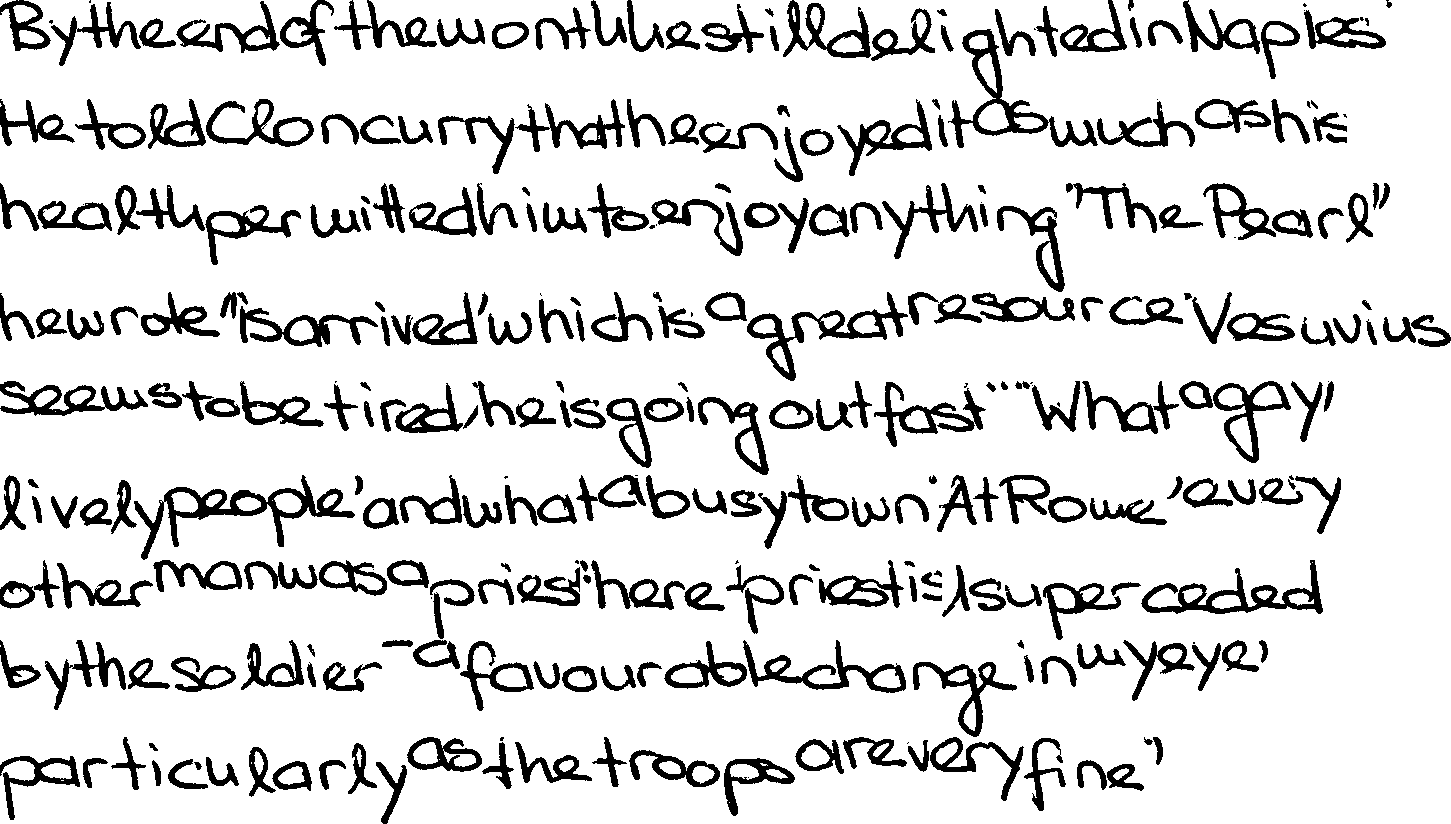 By the end of the month he still delighted in Naples.
He told Cloncurry that he enjoyed it as much as his
health permitted him to enjoy anything. "The Pearl"
he wrote "is arrived, which is a great resource. Vesuvius
seems to be tired, he is going out fast." "What a gay,
lively people, and what a busy town. At Rome, every
other man was a priest; here priest is superceded
by the soldier - a favourable change in my eye,
particularly as the troops are very fine."